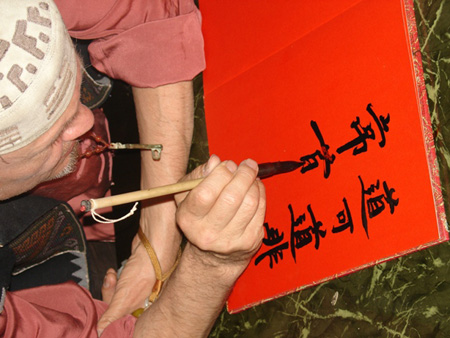 道可道非
常